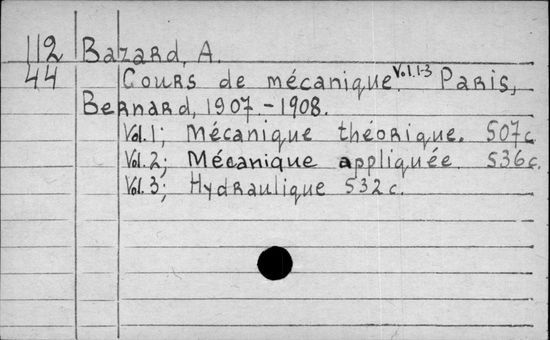 112 Bazard, A.
44 Cours de mécanique. Vol. 1-3 Paris,
Bernard, 1907.-1908.
Vol. 1; Mécanique théorique. 507 c.
Vol. 2; Mécanique appliquée. 536 c.
Vol. 3; Hydraulique 532 c.